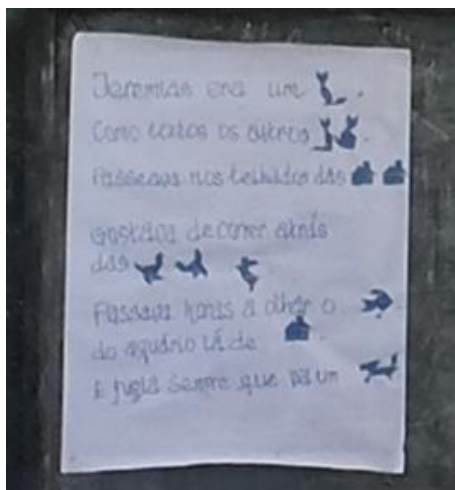 Jeremias era um
Como todos os outros
Passeava nos telhados das
Gostava de correr atrás
das
Passava horas a olhar o
do aquário lá de
E fugia sempre que via um